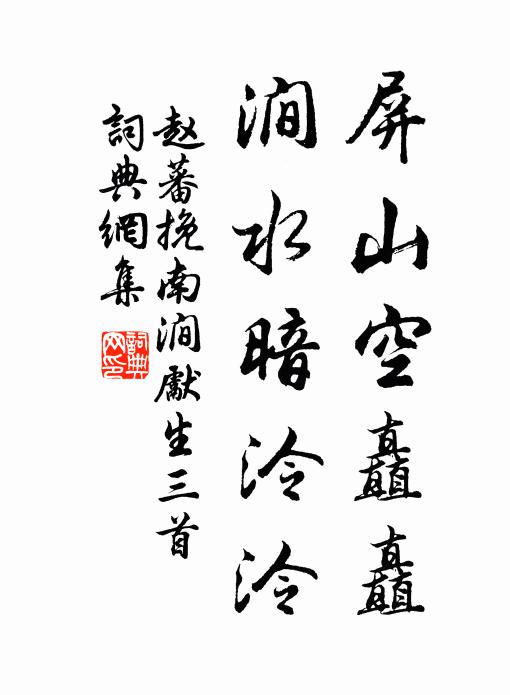 屏山空矗矗
澗水暗泠泠
赵蕃挽南澗獻生三首
詞典網集
詞典网印